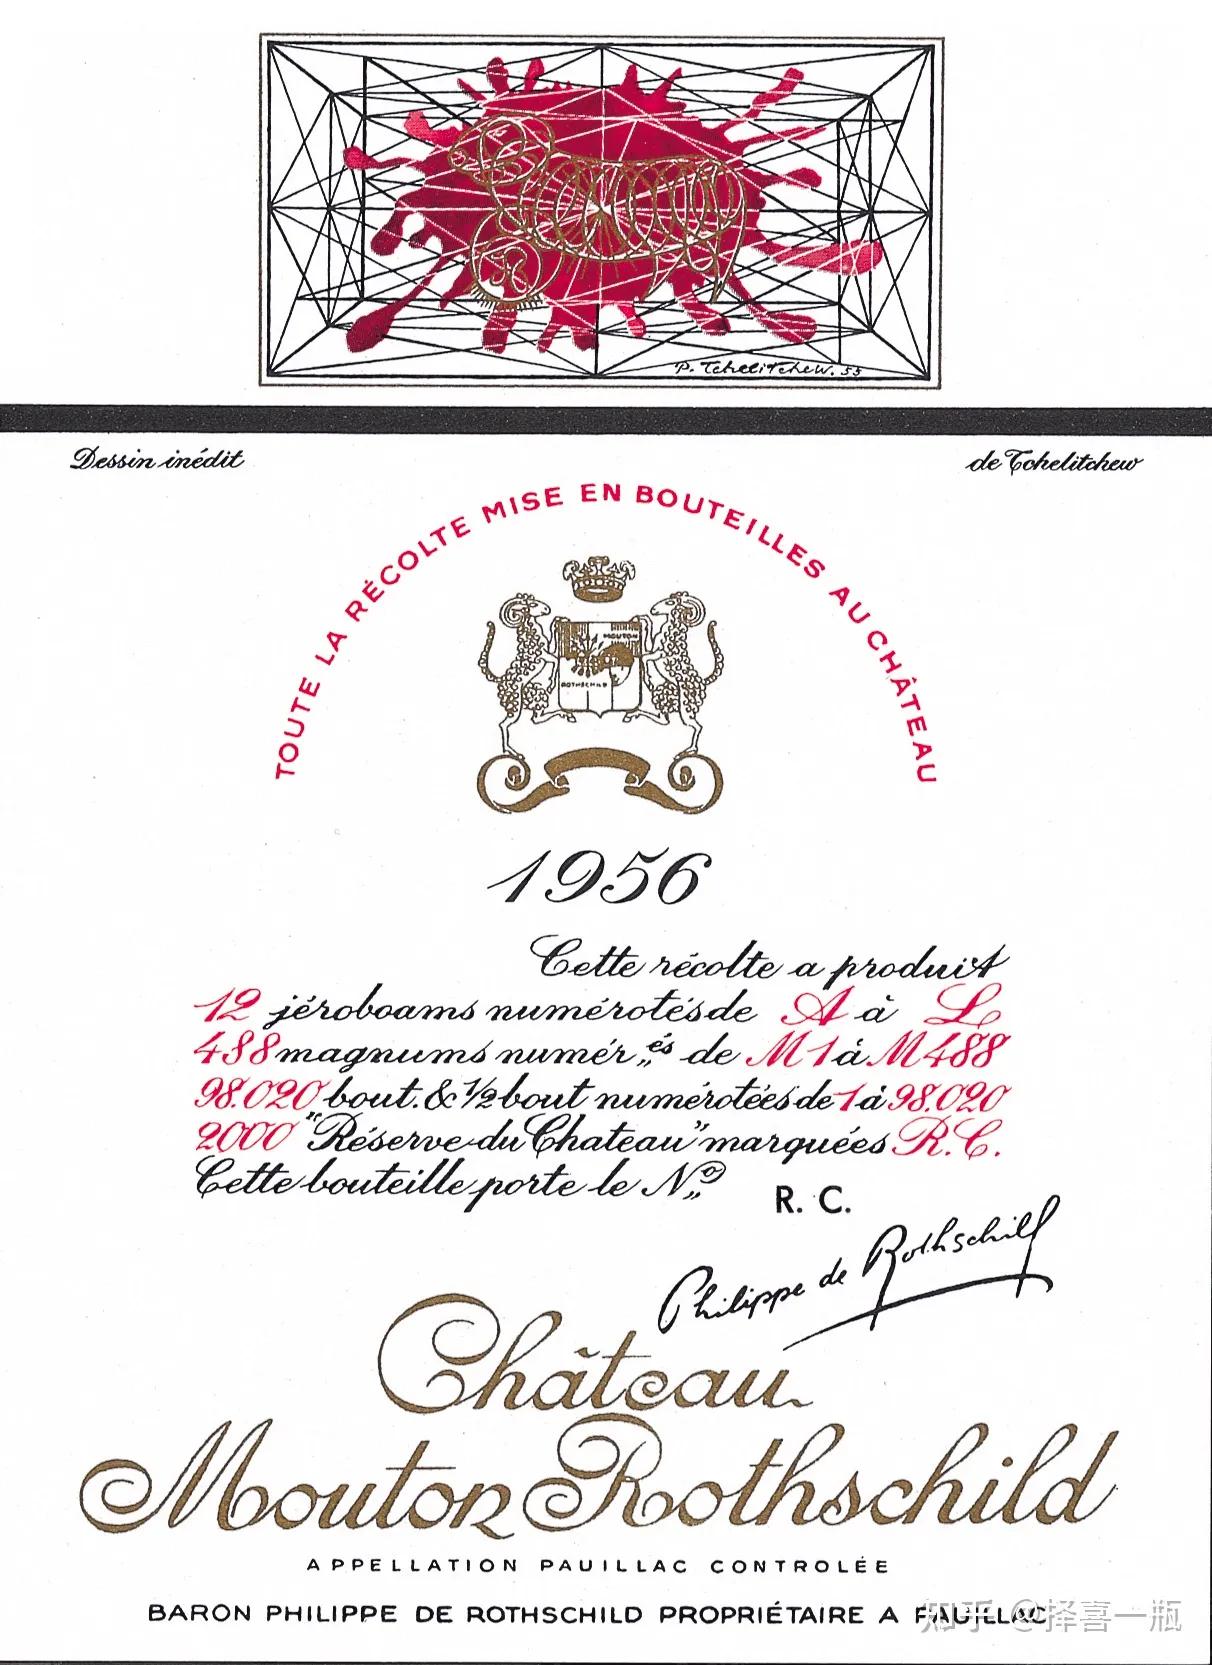 P. Tchelitchew. 55
Dessin inédit
de Tchelitchew
TOUTE LA RÉCOLTE MISE EN BOUTEILLES AU CHÂTEAU
MOUTON
ROTHSCHILD
1956
Cette récolte a produit
12 jéroboams numérotés de A à L
488 magnums numér„és de M1 à M488
98.020 bout. & 1/2 bout numérotées de 1 à 98.020
2000 "Réserve du Chateau" marquées R.C.
Cette bouteille porte le No R. C.
Philippe de Rothschild
Château
Mouton Rothschild
APPELLATION PAUILLAC CONTROLÉE
BARON PHILIPPE DE ROTHSCHILD PROPRIÉTAIRE A PAUILLAC
知乎 @择喜一瓶